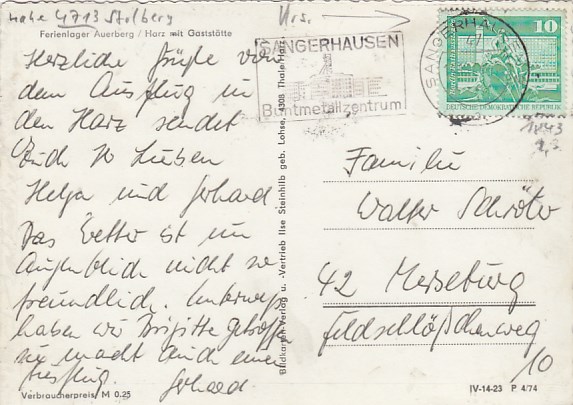 nahe 4713 Stolberg
Ferienlager Auerberg / Harz mit Gaststätte
Herzliche Grüße von
dem Ausflug in
den Harz sendet
Euch Ihr Lieben
Helga und Gerhard
Das Wetter ist im
Augenblick nicht so
freundlich. Unterwegs
haben wir Brigitte getroffen
sie macht auch einen
Ausflug. Gerhard
Verbraucherpreis: M 0.25
Bildkarten-Verlag u. -Vertrieb Ilse Steinhilb geb. Lohse, 4308 Thale/Harz
SANGERHAUSEN
Buntmetallzentrum
SANGERHAUSEN
10
DEUTSCHE DEMOKRATISCHE REPUBLIK
1843
Familie
Walter Schröter
42 Merseburg
Feldschlößchenweg
10
IV-14-23 P 4/74